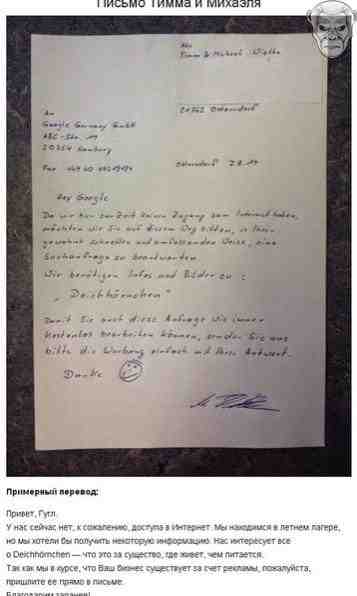 Письмо Тимма и Михаэля
Abs
Timm & Michael
21762 Otterndorf
An
Google Germany GmbH
ABC-Str. 19
20354 Hamburg
Fax
Otterndorf
Hey Google
Da wir hier zur Zeit keinen Zugang zum Internet haben,
möchten wir Sie auf diesem Weg bitten, in Ihrer
gewohnt schnellen und umfassenden Weise, eine
Suchanfrage zu beantworten.
Wir benötigen Infos und Bilder zu:
„Deichhörnchen"
Damit Sie auch diese Anfrage wie immer
kostenlos bearbeiten können, senden Sie uns
bitte die Werbung einfach mit Ihrer Antwort.
Danke
Примерный перевод:
Привет, Гугл.
У нас сейчас нет, к сожалению, доступа в Интернет. Мы находимся в летнем лагере,
но мы хотели бы получить некоторую информацию. Нас интересует все
о Deichhörnchen — что это за существо, где живет, чем питается.
Так как мы в курсе, что Ваш бизнес существует за счет рекламы, пожалуйста,
пришлите ее прямо в письме.
Благодарим заранее!